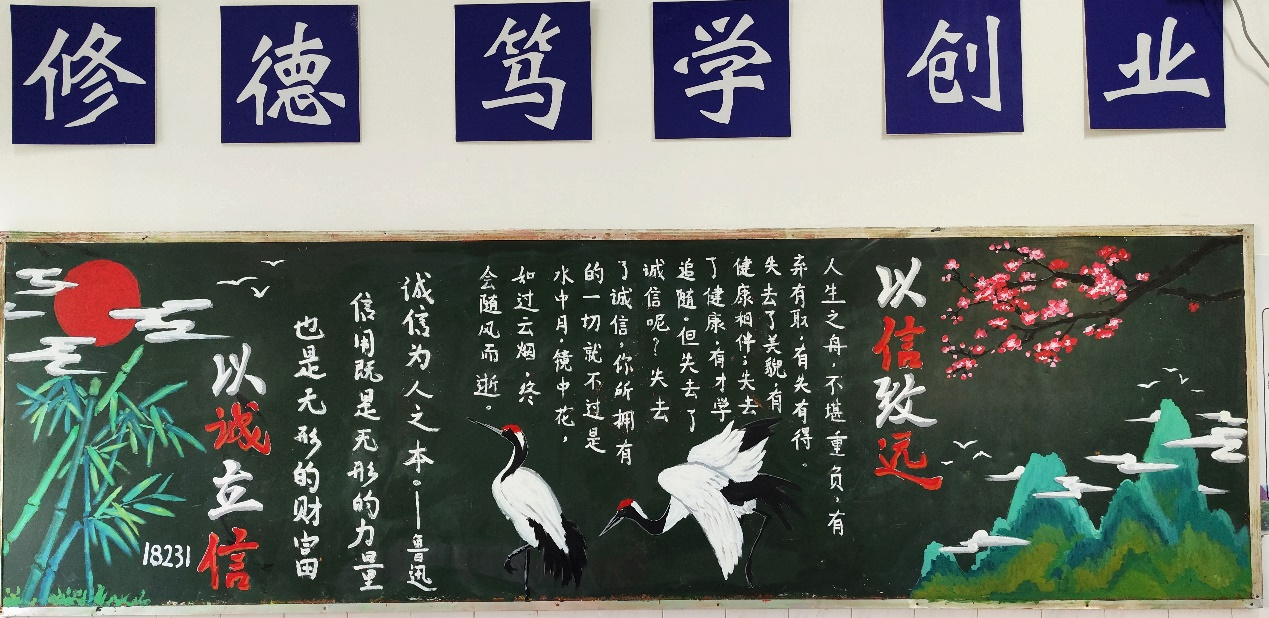 修德笃学创业
以信致远
人生之舟，不堪重负，有
弃有取，有失有得。
失去了美貌，有
健康相伴，失去
了健康，有才学
追随，但失去了
诚信呢？失去
了诚信，你所拥有
的一切就不过是
水中月，镜中花，
如过云烟，终
会随风而逝。
诚信为人之本。—鲁迅
信用既是无形的力量
也是无形的财富
以诚立信
18231